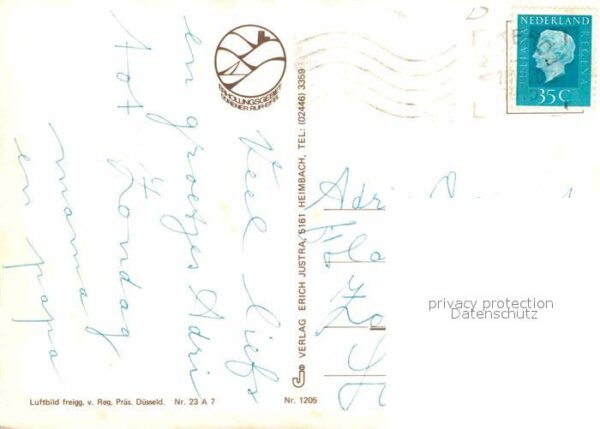 Veel liefs
en groetjes Adri
tot
Zondag
mama
en papa
Adri
ERHOLUNGSGEBIET
DÜRENER RUR-EIFEL
VERLAG ERICH JUSTRA, 5161 HEIMBACH, TEL: (02446) 3359
NEDERLAND
JULIANA
REGINA
35C
privacy protection
Datenschutz
Luftbild freigg. v. Reg. Präs. Düsseld. Nr. 23 A 7
Nr. 1205